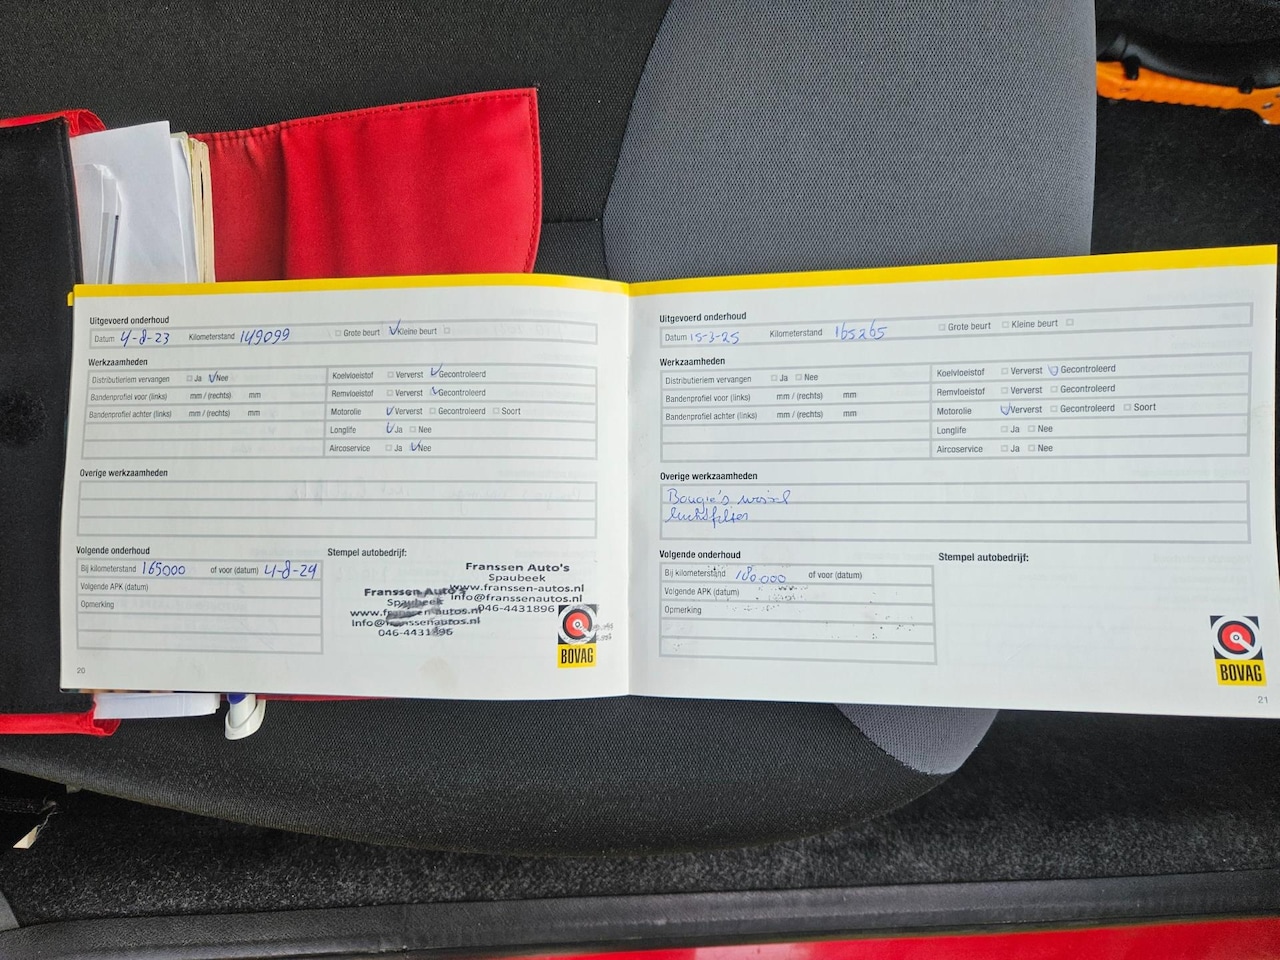 Uitgevoerd onderhoud
Datum 4-8-23 Kilometerstand 149099 Grote beurt Kleine beurt
Werkzaamheden
Distributieriem vervangen Ja Nee
Bandenprofiel voor (links) mm / (rechts) mm
Bandenprofiel achter (links) mm / (rechts) mm
Koelvloeistof Ververst Gecontroleerd
Remvloeistof Ververst Gecontroleerd
Motorolie Ververst Gecontroleerd Soort
Longlife Ja Nee
Aircoservice Ja Nee
Overige werkzaamheden
Volgende onderhoud
Bij kilometerstand 165000 of voor (datum) 4-8-24
Volgende APK (datum)
Opmerking
Stempel autobedrijf:
Franssen Auto's
Spaubeek
www.franssenautos.nl
Info@franssenautos.nl
046-4431896
Franssen Auto's
Spaubeek
www.franssenautos.nl
Info@franssenautos.nl
046-4431896
BOVAG
20
Uitgevoerd onderhoud
Datum 15-3-25 Kilometerstand 165265 Grote beurt Kleine beurt
Werkzaamheden
Distributieriem vervangen Ja Nee
Bandenprofiel voor (links) mm / (rechts) mm
Bandenprofiel achter (links) mm / (rechts) mm
Koelvloeistof Ververst Gecontroleerd
Remvloeistof Ververst Gecontroleerd
Motorolie Ververst Gecontroleerd Soort
Longlife Ja Nee
Aircoservice Ja Nee
Overige werkzaamheden
Bougie's
luchtfilter
Volgende onderhoud
Bij kilometerstand 180.000 of voor (datum)
Volgende APK (datum)
Opmerking
Stempel autobedrijf:
BOVAG
21